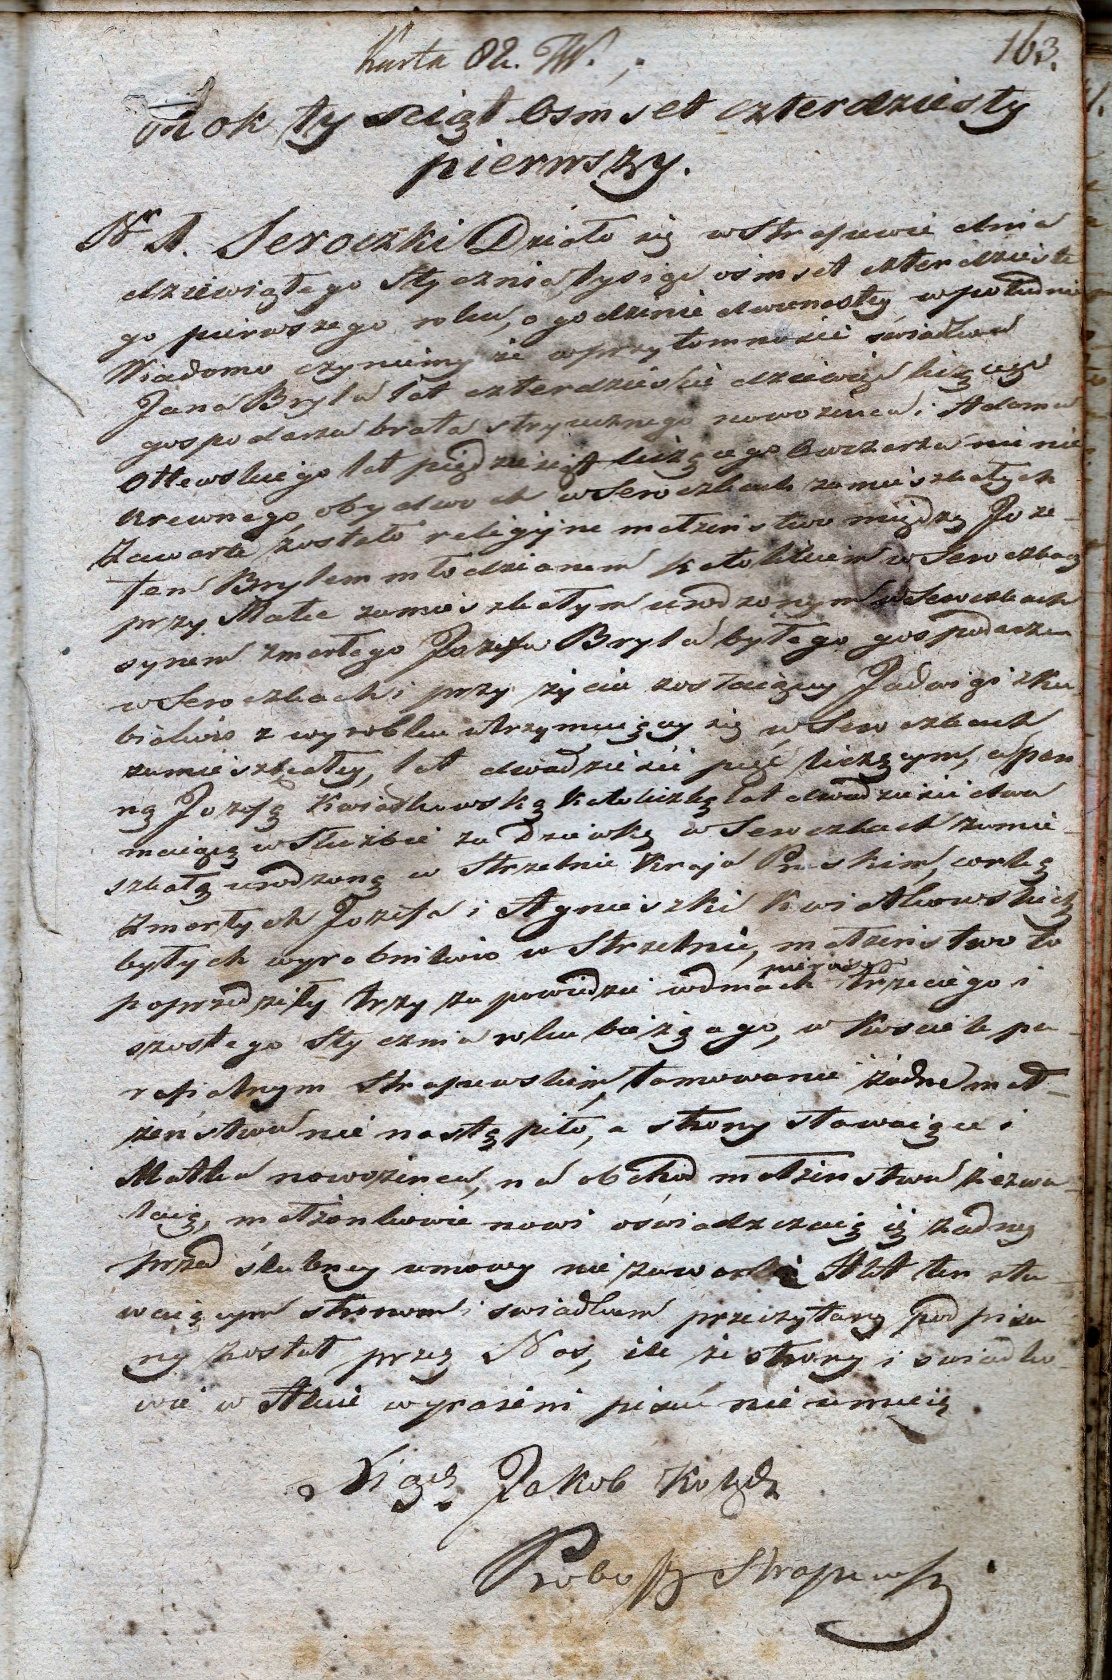 Karta 82. W.
163.
Rok tysciąt Osmset czterdziesty
pierwszy.
Nr 1. Seroczki Działo się w Strzepewie dnia
dziewiątego Stycznia tysiąc osimset czterdzieste
go pierwszego roku, o godzinie dwunastey w południe
Wiadomo czyniemy że w przytomności świadków
Jana Bryla lat czterdzieście dziewięć liczącego
gospodarza brata stryecznego nowożeńca i Adama
lat pięćdziesiąt liczącego Owczarza nie nie
krewnego, obydwoch w Seroczkach zamieszkałych
Zawarte zostało religijne małżeństwo między Joze-
fem Brylem młodzianem katolikiem w Seroczkach
przy Matce zamieszkałym urodzonym w Seroczkach
synem zmarłego Jozefa Bryla byłego gospodarza
w Seroczkach i przy życiu zostaiącey Jadwigi z Ku-
bialów z wyrobku utrzymuiącey się w Seroczkach
zamieszkałey, lat dwadzieście pięć liczącym, a pan-
ną Jozefą Kwiatkowską Katoliczką lat dwadzieście dwa
maiącą w służbie za Dziewkę w Seroczkach zamie-
szkałą urodzoną w Strzelnie Kraju Pruskim, corką
Zmarłych Jozefa i Agnieszki Kwiatkowskich
byłych wyrobników w Strzelnie, małżeństwo to
poprzedziły trzy zapowiedzie w dniach pierwszego trzeciego i
szostego Stycznia roku bieżącego, w Kościele pa-
rafialnym, tamowanie żadne mał-
żeństwa nie nastąpiło, a strony stawaiące i
Matka nowożeńca, na obchod małżeństwa zezwa-
laią, małżonkowie nowi oświadczaią iż żadney
przed ślubney umowy nie zawarli Akt ten sta-
waiącym stronom i swiadkom przeczytany podpisa-
ny został przez Nas, ile że strony i swiadko-
wie w Akcie wyrażeni pisać nie umieią
Xiądz Jakob
Proboszcz